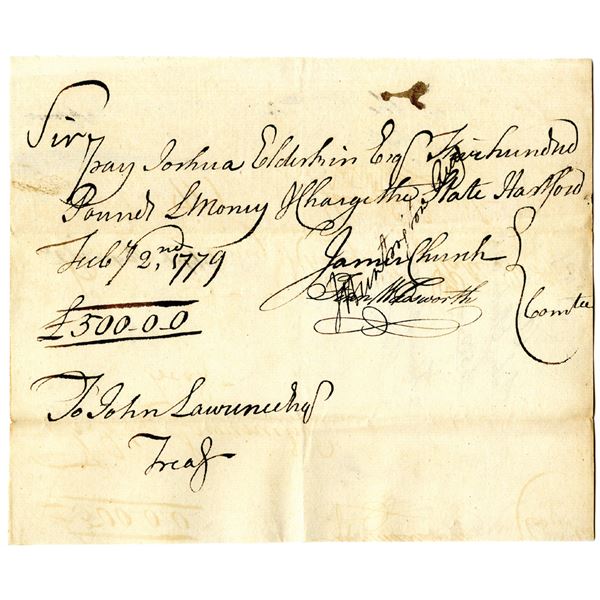 Sir
pay Joshua Elderkin Esq hundred
Pounds L Money & Charge the State Hartford
Feby 2nd, 1779
James Church
Wadsworth
Comtee
£500-0-0
To John Lawrence Esq
Treas